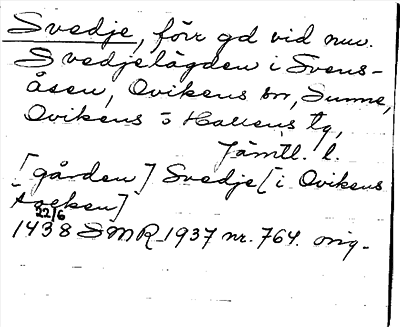 Svedje, förr gd vid nuv.
Svedjelägden i Svens-
åsen, Ovikens sn, Sunne,
Ovikens o Hallens tg,
Jämtl. l.
[gården] Svedje [i Ovikens
socken]
22/6
1438 SMR 1937 nr. 764. orig.